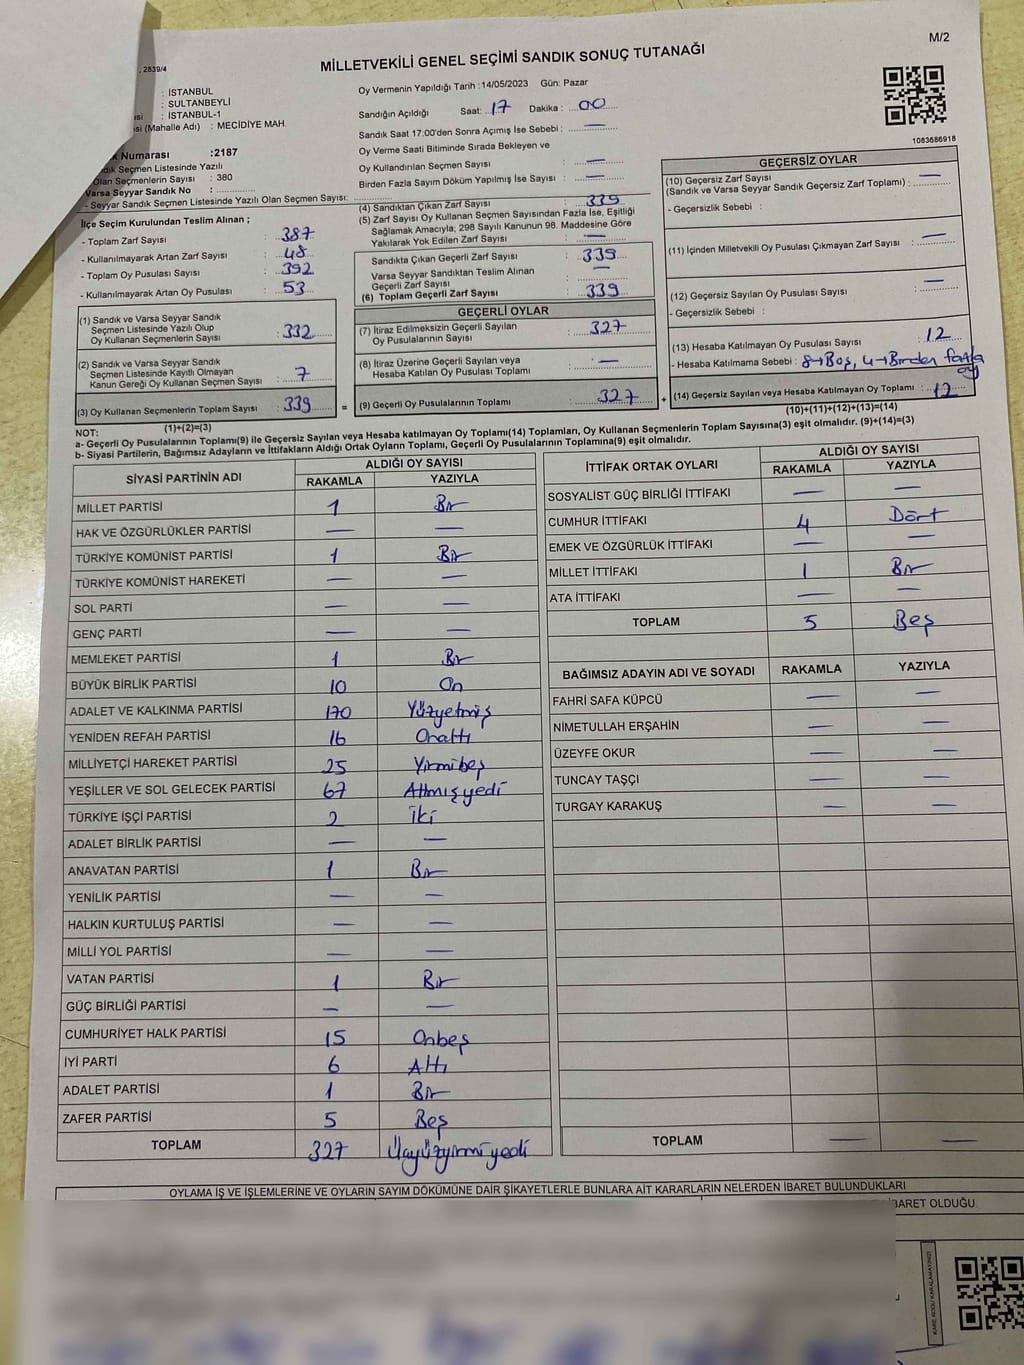 M/2
2839/4
MİLLETVEKİLİ GENEL SEÇİMİ SANDIK SONUÇ TUTANAĞI
: İSTANBUL
: SULTANBEYLİ
: İSTANBUL-1
(Mahalle Adı) : MECİDİYE MAH.
Numarası :2187
Seçmen Listesinde Yazılı
Olan Seçmenlerin Sayısı : 380
Varsa Seyyar Sandık No :
- Seyyar Sandık Seçmen Listesinde Yazılı Olan Seçmen Sayısı:
Oy Vermenin Yapıldığı Tarih :14/05/2023 Gün: Pazar
Sandığın Açıldığı Saat: 17 Dakika : 00
Sandık Saat 17.00'den Sonra Açılmış İse Sebebi : —
Oy Verme Saati Bitiminde Sırada Bekleyen ve
Oy Kullandırılan Seçmen Sayısı : —
Birden Fazla Sayım Döküm Yapılmış İse Sayısı : —
1083686918
İlçe Seçim Kurulundan Teslim Alınan ;
- Toplam Zarf Sayısı : 387
- Kullanılmayarak Artan Zarf Sayısı : 48
- Toplam Oy Pusulası Sayısı : 392
- Kullanılmayarak Artan Oy Pusulası : 53
(1) Sandık ve Varsa Seyyar Sandık
Seçmen Listesinde Yazılı Olup
Oy Kullanan Seçmenlerin Sayısı : 332
(2) Sandık ve Varsa Seyyar Sandık
Seçmen Listesinde Kayıtlı Olmayan
Kanun Gereği Oy Kullanan Seçmen Sayısı : 7
(3) Oy Kullanan Seçmenlerin Toplam Sayısı : 339
(1)+(2)=(3)
(4) Sandıktan Çıkan Zarf Sayısı : 339
(5) Zarf Sayısı Oy Kullanan Seçmen Sayısından Fazla İse, Eşitliği
Sağlamak Amacıyla; 298 Sayılı Kanunun 98. Maddesine Göre
Yakılarak Yok Edilen Zarf Sayısı : —
Sandıkta Çıkan Geçerli Zarf Sayısı : 339
Varsa Seyyar Sandıktan Teslim Alınan
Geçerli Zarf Sayısı : —
(6) Toplam Geçerli Zarf Sayısı : 339
GEÇERLİ OYLAR
(7) İtiraz Edilmeksizin Geçerli Sayılan
Oy Pusulalarının Sayısı : 327
(8) İtiraz Üzerine Geçerli Sayılan veya
Hesaba Katılan Oy Pusulası Toplamı : —
= (9) Geçerli Oy Pusulalarının Toplamı : 327 +
GEÇERSİZ OYLAR
(10) Geçersiz Zarf Sayısı
(Sandık ve Varsa Seyyar Sandık Geçersiz Zarf Toplamı) : —
- Geçersizlik Sebebi :
(11) İçinden Milletvekili Oy Pusulası Çıkmayan Zarf Sayısı : —
(12) Geçersiz Sayılan Oy Pusulası Sayısı : —
- Geçersizlik Sebebi :
(13) Hesaba Katılmayan Oy Pusulası Sayısı : 12
- Hesaba Katılmama Sebebi : 8→Boş, 4→Birden fazla
oy
(14) Geçersiz Sayılan veya Hesaba Katılmayan Oy Toplamı : 12
(10)+(11)+(12)+(13)=(14)
NOT:
a- Geçerli Oy Pusulalarının Toplamı(9) ile Geçersiz Sayılan veya Hesaba katılmayan Oy Toplamı(14) Toplamları, Oy Kullanan Seçmenlerin Toplam Sayısına(3) eşit olmalıdır. (9)+(14)=(3)
b- Siyasi Partilerin, Bağımsız Adayların ve İttifakların Aldığı Ortak Oyların Toplamı, Geçerli Oy Pusulalarının Toplamına(9) eşit olmalıdır.
SİYASİ PARTİNİN ADI ALDIĞI OY SAYISI
RAKAMLA YAZIYLA
MİLLET PARTİSİ 1 Bir
HAK VE ÖZGÜRLÜKLER PARTİSİ — —
TÜRKİYE KOMÜNİST PARTİSİ 1 Bir
TÜRKİYE KOMÜNİST HAREKETİ — —
SOL PARTİ — —
GENÇ PARTİ — —
MEMLEKET PARTİSİ 1 Bir
BÜYÜK BİRLİK PARTİSİ 10 On
ADALET VE KALKINMA PARTİSİ 170 Yüzyetmiş
YENİDEN REFAH PARTİSİ 16 Onaltı
MİLLİYETÇİ HAREKET PARTİSİ 25 Yirmibeş
YEŞİLLER VE SOL GELECEK PARTİSİ 67 Altmışyedi
TÜRKİYE İŞÇİ PARTİSİ 2 İki
ADALET BİRLİK PARTİSİ — —
ANAVATAN PARTİSİ 1 Bir
YENİLİK PARTİSİ — —
HALKIN KURTULUŞ PARTİSİ — —
MİLLİ YOL PARTİSİ — —
VATAN PARTİSİ 1 Bir
GÜÇ BİRLİĞİ PARTİSİ — —
CUMHURİYET HALK PARTİSİ 15 Onbeş
İYİ PARTİ 6 Altı
ADALET PARTİSİ 1 Bir
ZAFER PARTİSİ 5 Beş
TOPLAM 327 Üçyüzyirmiyedi
İTTİFAK ORTAK OYLARI ALDIĞI OY SAYISI
RAKAMLA YAZIYLA
SOSYALİST GÜÇ BİRLİĞİ İTTİFAKI — —
CUMHUR İTTİFAKI 4 Dört
EMEK VE ÖZGÜRLÜK İTTİFAKI — —
MİLLET İTTİFAKI 1 Bir
ATA İTTİFAKI — —
TOPLAM 5 Beş
BAĞIMSIZ ADAYIN ADI VE SOYADI RAKAMLA YAZIYLA
FAHRİ SAFA KÜPCÜ — —
NİMETULLAH ERŞAHİN — —
ÜZEYFE OKUR — —
TUNCAY TAŞÇI — —
TURGAY KARAKUŞ — —
TOPLAM — —
OYLAMA İŞ VE İŞLEMLERİNE VE OYLARIN SAYIM DÖKÜMÜNE DAİR ŞİKAYETLERLE BUNLARA AİT KARARLARIN NELERDEN İBARET BULUNDUKLARI
İBARET OLDUĞU
KARE KODU KARALAMAYINIZ!